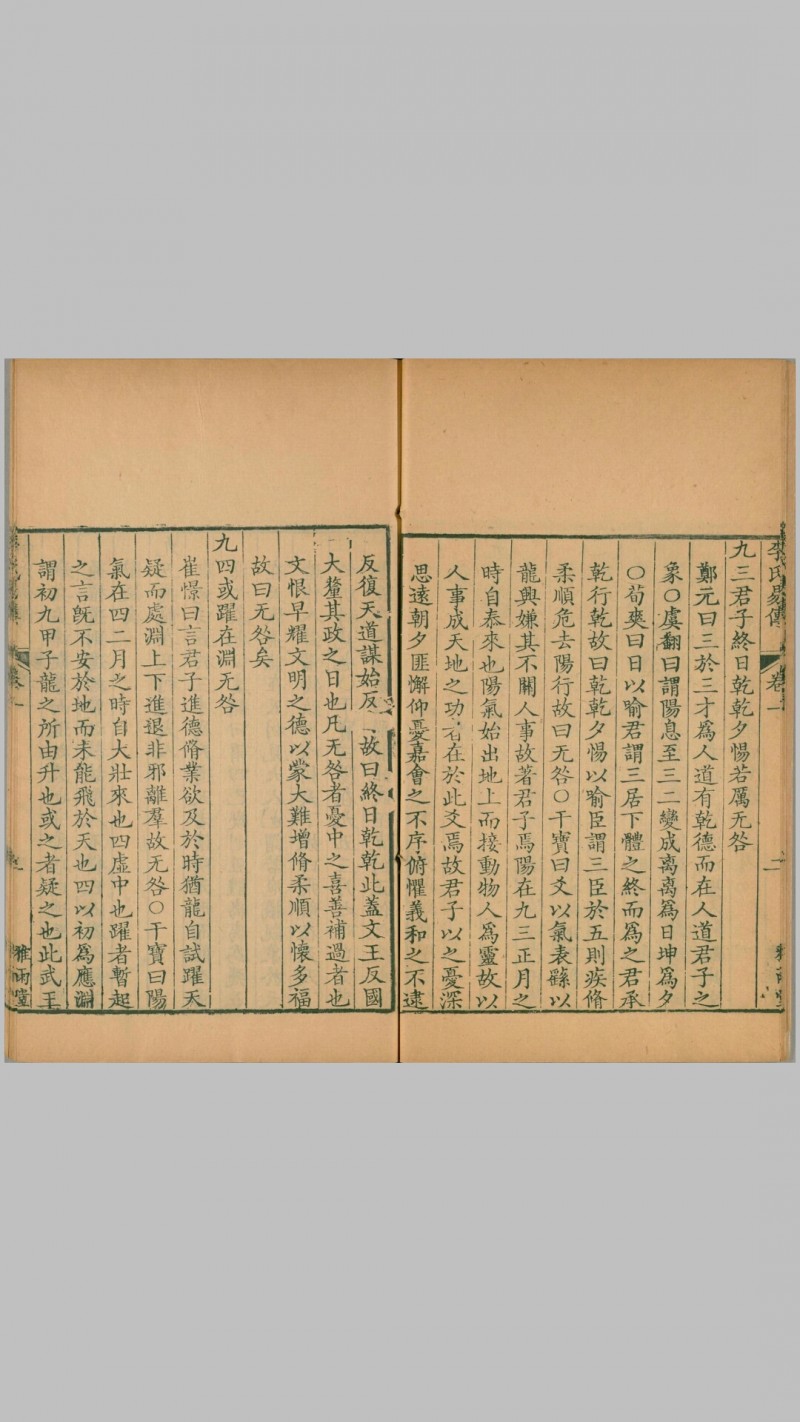 李氏易傳 卷一
九三君子終日乾乾夕惕若厲无咎
鄭元曰三於三才爲人道有乾德而在人道君子之
象〇虞翻曰謂陽息至三二變成离离爲日坤爲夕
〇荀爽曰日以喻君謂三居下體之終而爲之君承
乾行乾故曰乾乾夕惕以喻臣謂三臣於五則疾脩
柔順危去陽行故曰无咎〇干寶曰爻以氣表繇以
龍興嫌其不關人事故著君子焉陽在九三正月之
時自泰來也陽氣始出地上而接動物人爲靈故以
人事成天地之功者在於此爻焉故君子以之憂深
思遠朝夕匪懈仰憂嘉會之不序俯懼義和之不逮
反復天道謀始反故曰終日乾乾此蓋文王反國
大釐其政之日也凡无咎者憂中之喜善補過者也
文恨早耀文明之德以蒙大難增脩柔順以懷多福
故曰无咎矣
九四或躍在淵无咎
崔憬曰言君子進德脩業欲及於時猶龍自試躍天
疑而處淵上下進退非邪離羣故无咎〇干寶曰陽
氣在四二月之時自大壯來也四虛中也躍者暫起
之言旣不安於地而未能飛於天也四以初爲應淵
謂初九甲子龍之所由升也或之者疑之也此武王
卷一 雅雨堂